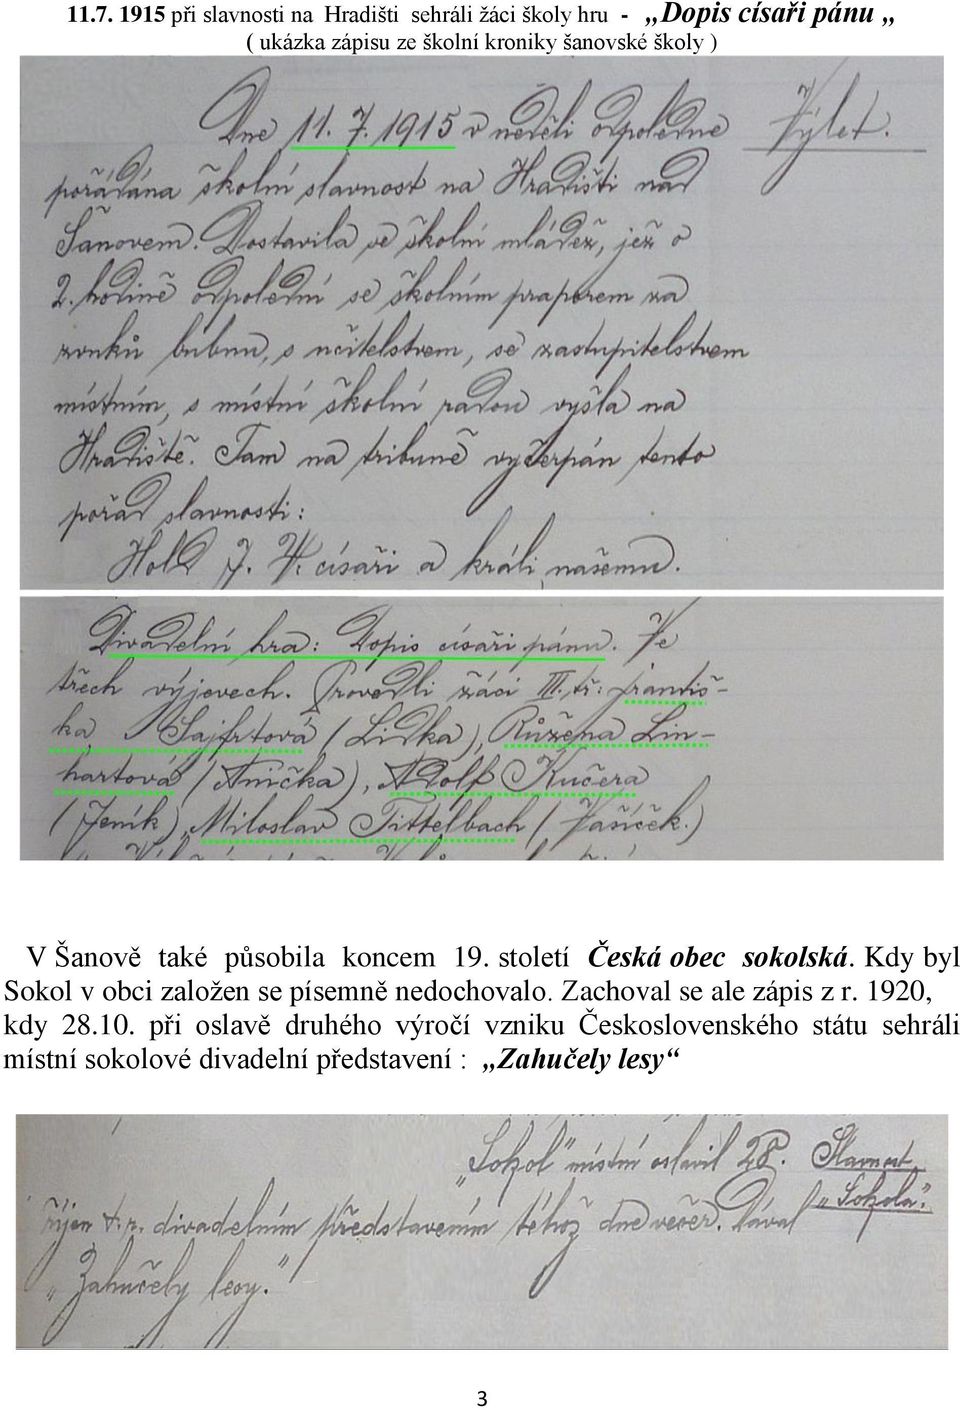 11.7. 1915 při slavnosti na Hradišti sehráli žáci školy hru - „Dopis císaři pánu „
( ukázka zápisu ze školní kroniky šanovské školy )
Dne 11. 7. 1915 v neděli odpoledne Výlet.
pořádána školní slavnost na Hradišti nad
Šanovem. Dostavila se školní mládež, jež o
2. hodině odpolední se školním praporem za
zvuků bubnu, s učitelstvem, se zastupitelstvem
místním, s místní školní radou vyšla na
Hradiště. Tam na tribuně vyčerpán tento
pořad slavnosti:
Hold J. V. císaři a králi našemu.
Divadelní hra: Dopis císaři pánu. Ve
třech výjevech. Provedli žáci III. tř: Františ-
ka Sajfrtová (Lidka), Růžena Lin-
hartová (Anička), Adolf Kučera
(Jeník), Miloslav Tittelbach (Vašíček.)
V Šanově také působila koncem 19. století Česká obec sokolská. Kdy byl
Sokol v obci založen se písemně nedochovalo. Zachoval se ale zápis z r. 1920,
kdy 28.10. při oslavě druhého výročí vzniku Československého státu sehráli
místní sokolové divadelní představení : „Zahučely lesy“
„Sokol" místní oslavil 28. Slavnost
října t.r. divadelním představením téhož dne večer. Dával „Sokola."
„Zahučely lesy."
3